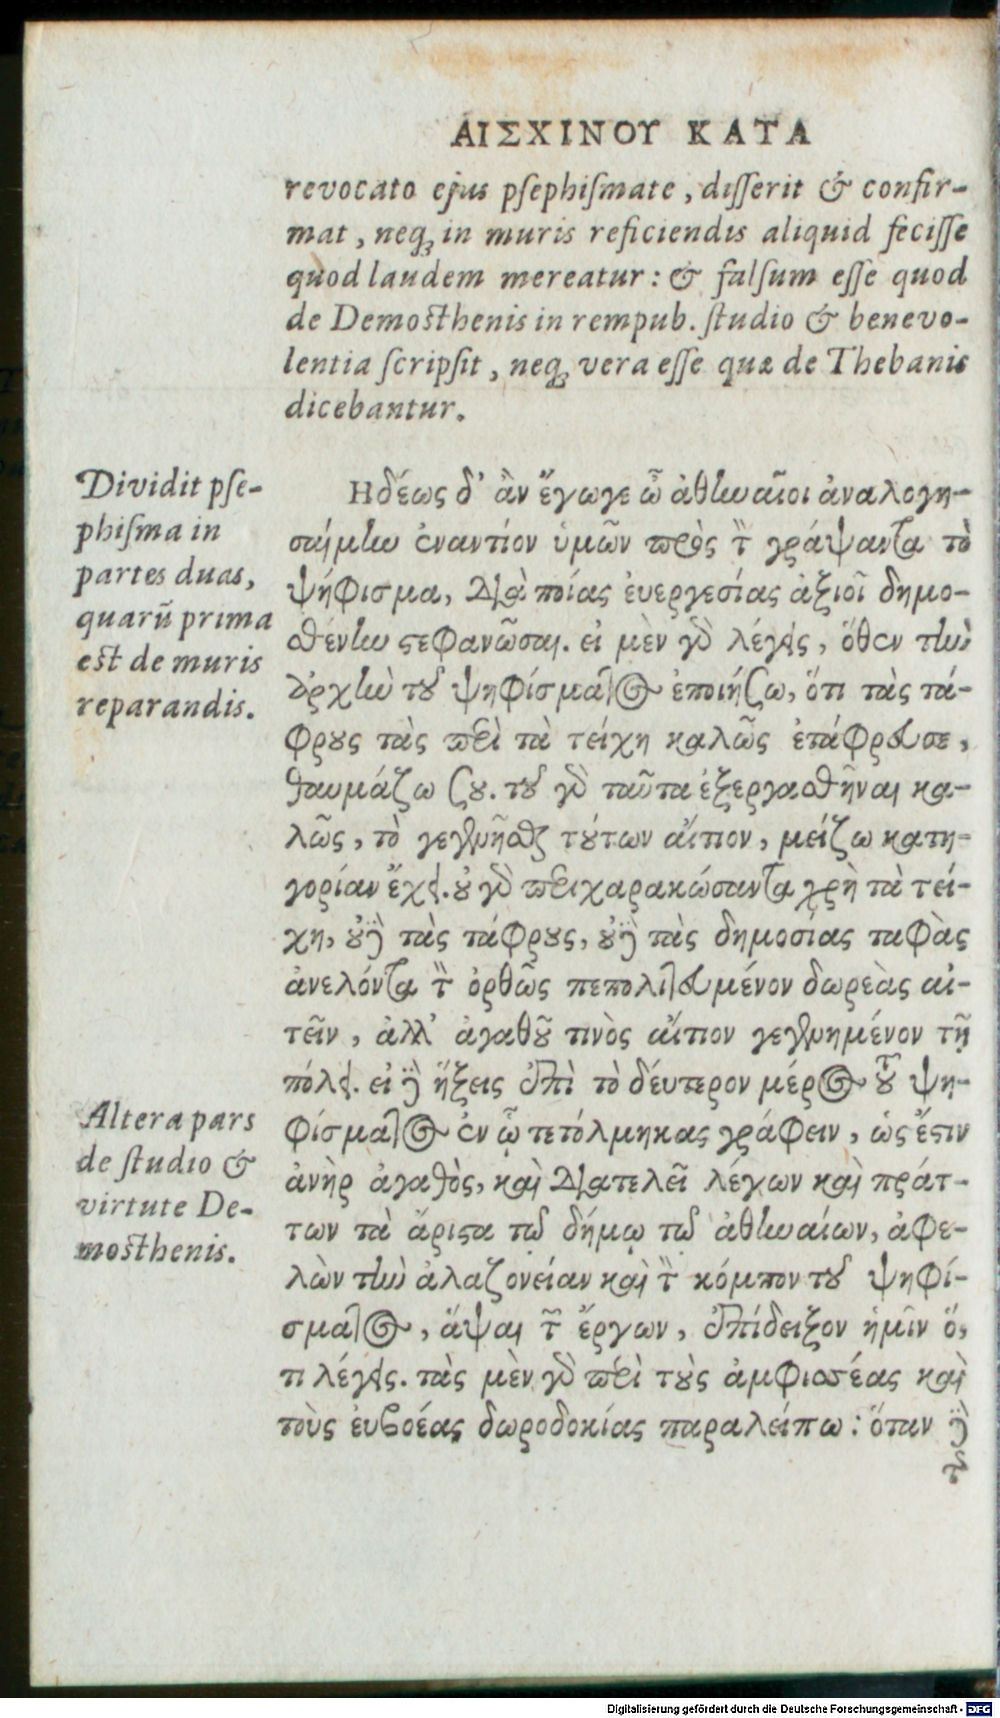 ΑΙΣΧΙΝΟΥ ΚΑΤΑ
revocato ejus psephismate, disserit & confir-
mat, neq; in muris reficiendis aliquid fecisse
quod laudem mereatur: & falsum esse quod
de Demosthenis in rempub. studio & benevo-
lentia scripsit, neq; vera esse quæ de Thebanis
dicebantur.
Dividit pse-
phisma in
partes duas,
quarũ prima
est de muris
reparandis.
Ηδέως δ' ἂν ἔγωγε ὦ ἀθηναῖοι ἀναλογη-
σαίμην ἐναντίον ὑμῶν πρὸς τὸν γράψαντα τὸ
ψήφισμα, διὰ ποίας ἐυεργεσίας ἀξιοῖ δημο-
σθένην στεφανῶσαι. εἰ μὲν γὰρ λέγεις, ὅθεν τὴν
ἀρχὴν τοῦ ψηφίσματος ἐποιήσω, ὅτι τὰς τά-
φρους τὰς περὶ τὰ τείχη καλῶς ἐτάφρευσε,
θαυμάζω σου. τοῦ γὰρ ταῦτα ἐξεργασθῆναι κα-
λῶς, τὸ γεγενῆσθαι τούτων αἴτιον, μείζω κατη-
γορίαν ἔχει. οὐ γὰρ περιχαρακώσαντα χρὴ τὰ τεί-
χη, οὐδὲ τὰς τάφρους, οὐδὲ τὰς δημοσίας ταφὰς
ἀνελόντα τὸν ὀρθῶς πεπολιτευμένον δωρεὰς αἰ-
τεῖν, ἀλλ' ἀγαθοῦ τινὸς αἴτιον γεγενημένον τῇ
πόλει. εἰ δὲ ἥξεις ἐπὶ τὸ δεύτερον μέρος τοῦ ψη-
φίσματος ἐν ᾧ τετόλμηκας γράφειν, ὡς ἔστιν
ἀνὴρ ἀγαθὸς, καὶ διατελεῖ λέγων καὶ πράτ-
των τὰ ἄριστα τῷ δήμῳ τῷ ἀθηναίων, ἀφε-
λὼν τὴν ἀλαζονείαν καὶ τὸν κόμπον τοῦ ψηφί-
σματος, ἅψαι τῶν ἔργων, ἐπίδειξον ἡμῖν ὅ,
τι λέγεις. τὰς μὲν γὰρ περὶ τοὺς ἀμφισσέας καὶ
τοὺς ἐυβοέας δωροδοκίας παραλείπω: ὅταν δὲ
Altera pars
de studio &
virtute De-
mosthenis.
τῆς
Digitalisierung gefördert durch die Deutsche Forschungsgemeinschaft - DFG